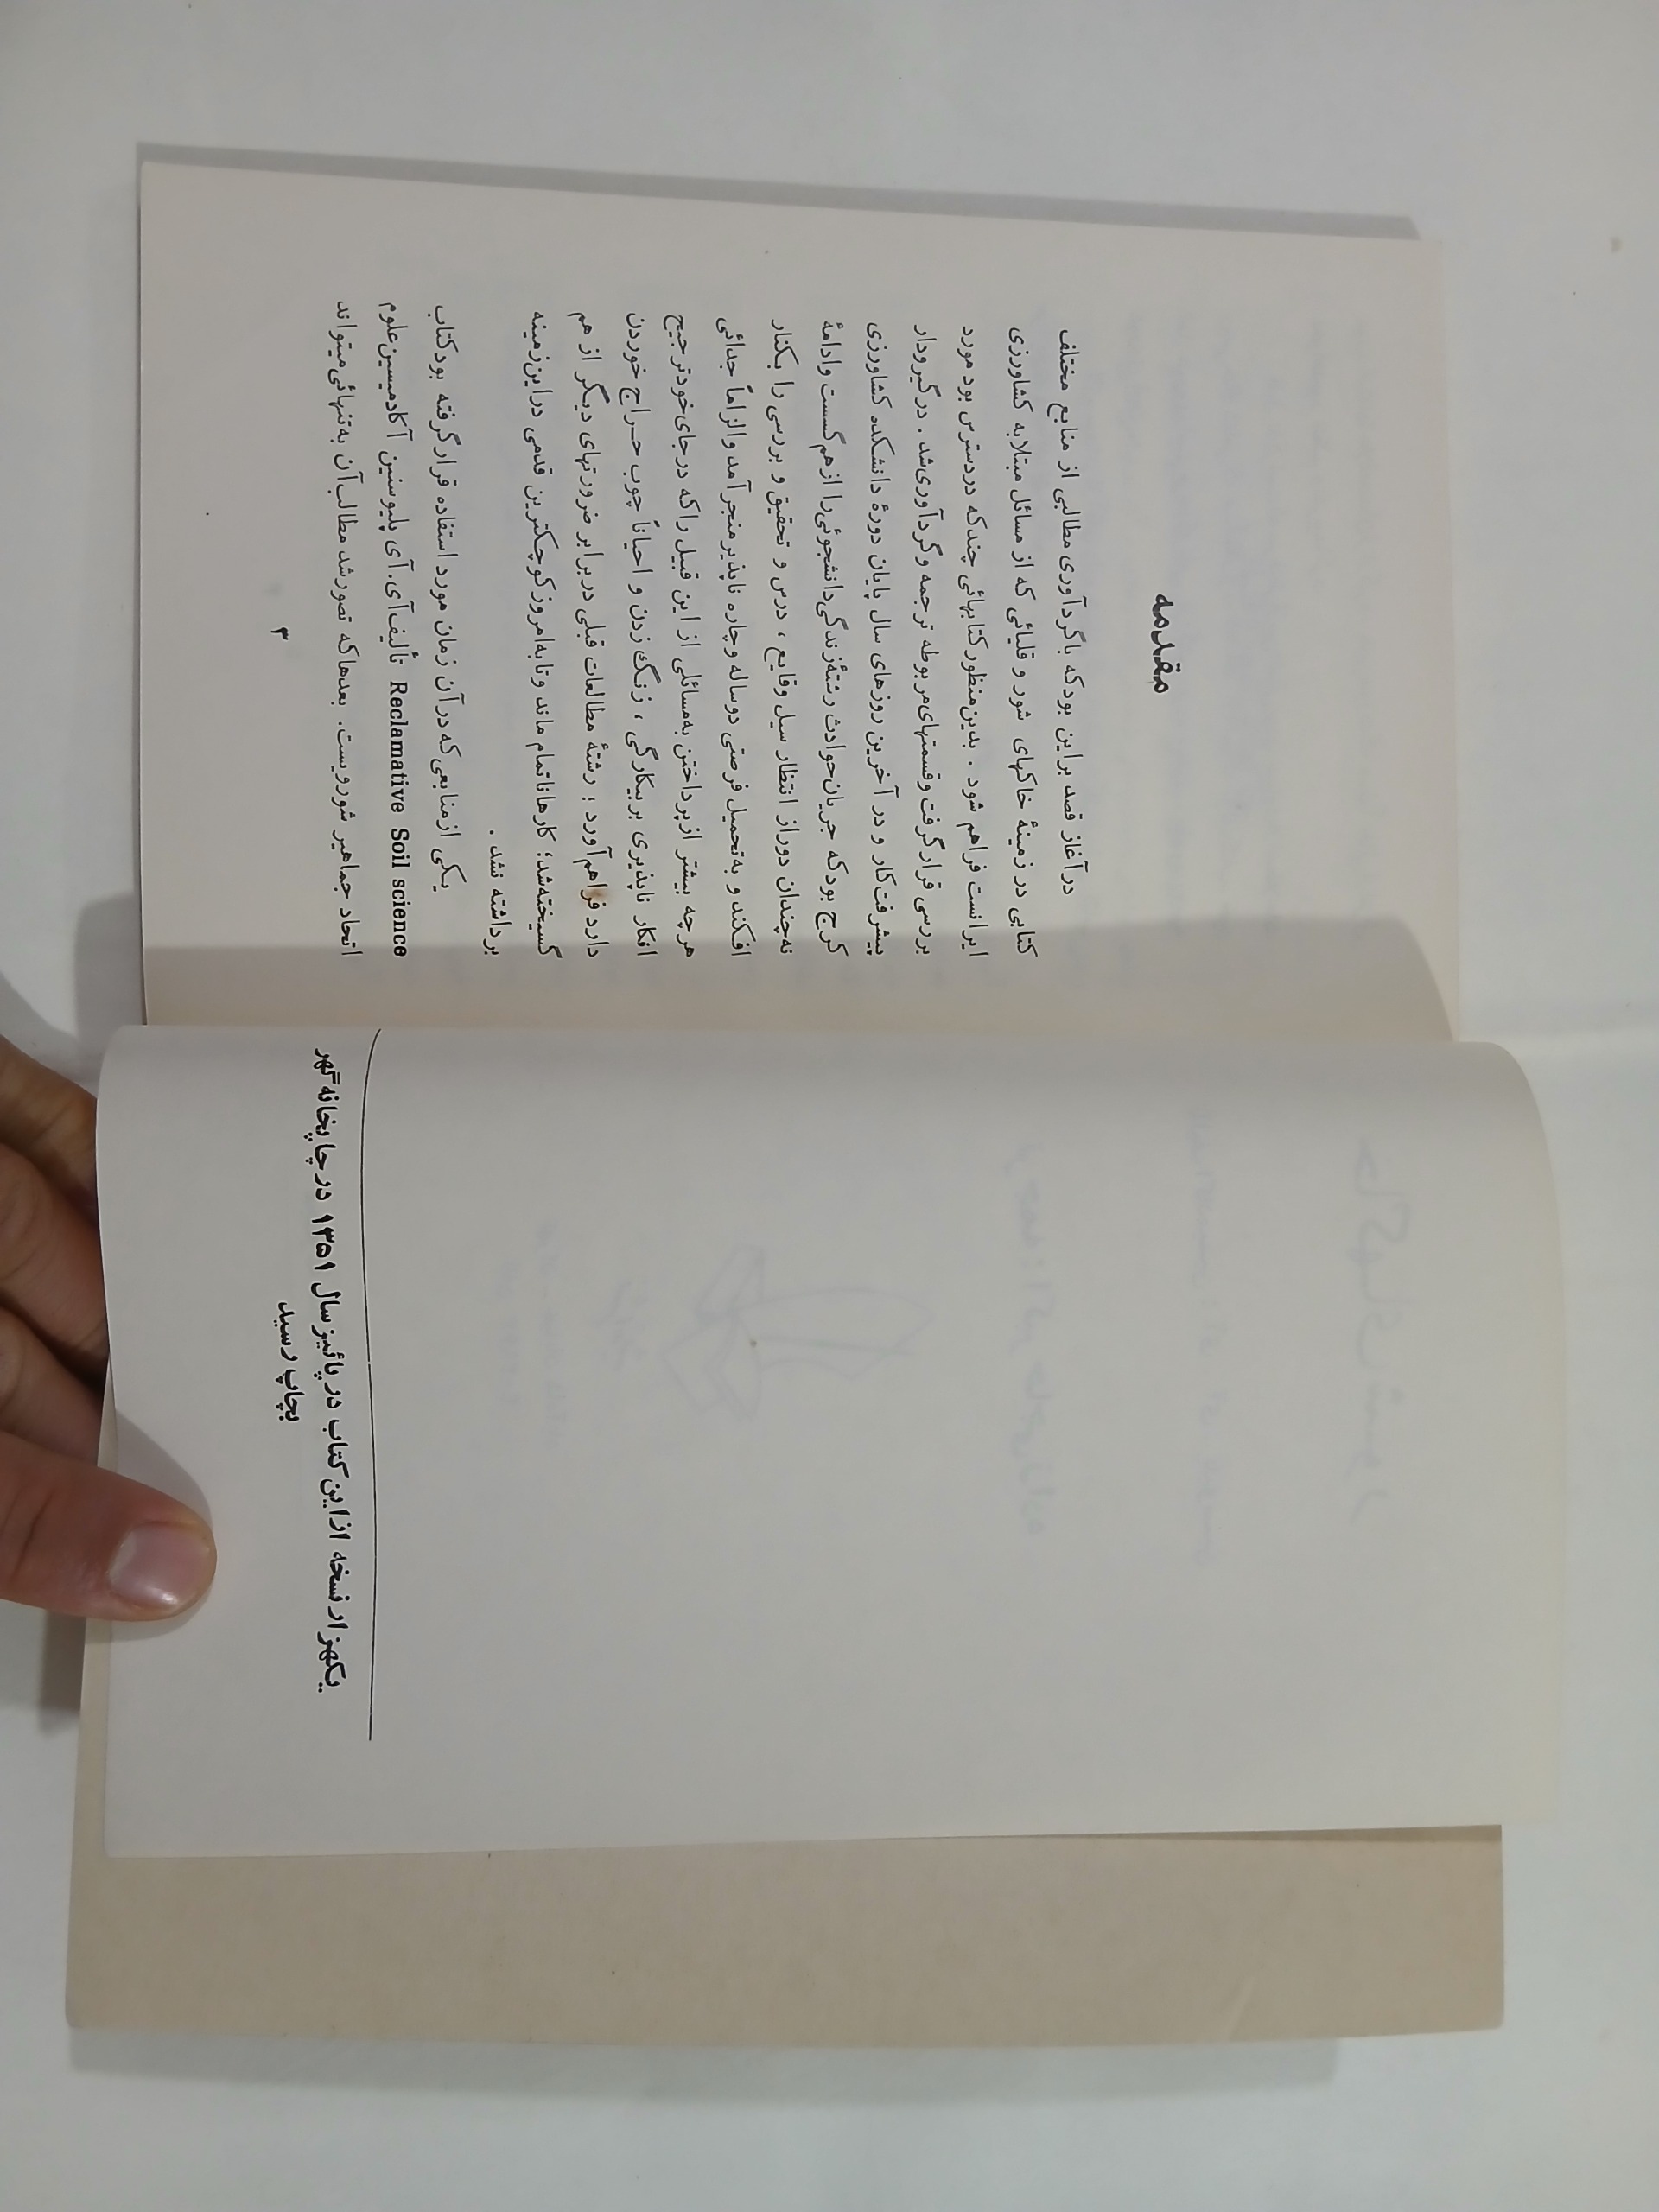 یکهزار نسخه از این کتاب در پائیز سال ۱۳۵۱ در چاپخانه گهر
بچاپ رسید
مقدمه
در آغاز قصد بر این بود که با گردآوری مطالبی از منابع مختلف
کتابی در زمینهٔ خاکهای شور و قلیائی که از مسائل مبتلابه کشاورزی
ایرانست فراهم شود . بدین منظور کتابهائی چند که در دسترس بود مورد
بررسی قرار گرفت و قسمتهای مربوطه ترجمه و گردآوری شد . در گیرودار
پیشرفت کار و در آخرین روزهای سال پایان دورهٔ دانشکده کشاورزی
کرج بود که جریان حوادث رشتهٔ زندگی دانشجوئی را از هم گسست و ادامهٔ
نه چندان دور از انتظار سیل وقایع ، درس و تحقیق و بررسی را بکنار
افکند و به تحمیل فرصتی دو ساله و چاره ناپذیر منجر آمد و الزاماً جدائی
هر چه بیشتر از پرداختن به مسائلی از این قبیل را که در جای خود ترجیح
افکار ناپذیری بر بیکارگی ، زنگ زدن و احیاناً چوب حراج خوردن
دارد فراهم آورد ؛ رشتهٔ مطالعات قبلی در برابر ضرورتهای دیگر از هم
گسیخته شد؛ کارها ناتمام ماند و تا به امروز کوچکترین قدمی در این زمینه
برداشته نشد .
یکی از منابعی که در آن زمان مورد استفاده قرار گرفته بود کتاب
Reclamative Soil science تألیف آی. آی پلیوسنین آکادمیسین علوم
اتحاد جماهیر شورویست. بعدها که تصور شد مطالب آن به تنهائی میتواند
۳